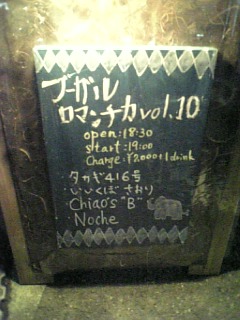 ブーガル
ロマンチカ vol.10
open:18:30
start:19:00
Charge:¥2000+1drink
タカギ416号
いいくぼ さおり
Chiao's "B"
Noche